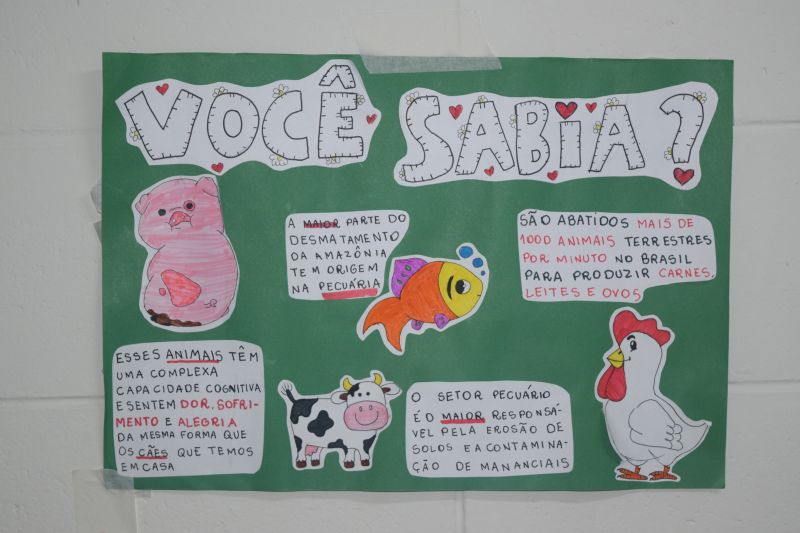 VOCÊ SABIA?
A MAIOR PARTE DO
DESMATAMENTO
DA AMAZÔNIA
TEM ORIGEM
NA PECUÁRIA
SÃO ABATIDOS MAIS DE
1000 ANIMAIS TERRESTRES
POR MINUTO NO BRASIL
PARA PRODUZIR CARNES,
LEITES E OVOS
ESSES ANIMAIS TÊM
UMA COMPLEXA
CAPACIDADE COGNITIVA
E SENTEM DOR, SOFRI-
MENTO E ALEGRIA
DA MESMA FORMA QUE
OS CÃES QUE TEMOS
EM CASA
O SETOR PECUÁRIO
É O MAIOR RESPONSÁ-
VEL PELA EROSÃO DE
SOLOS E A CONTAMINA-
ÇÃO DE MANANCIAIS